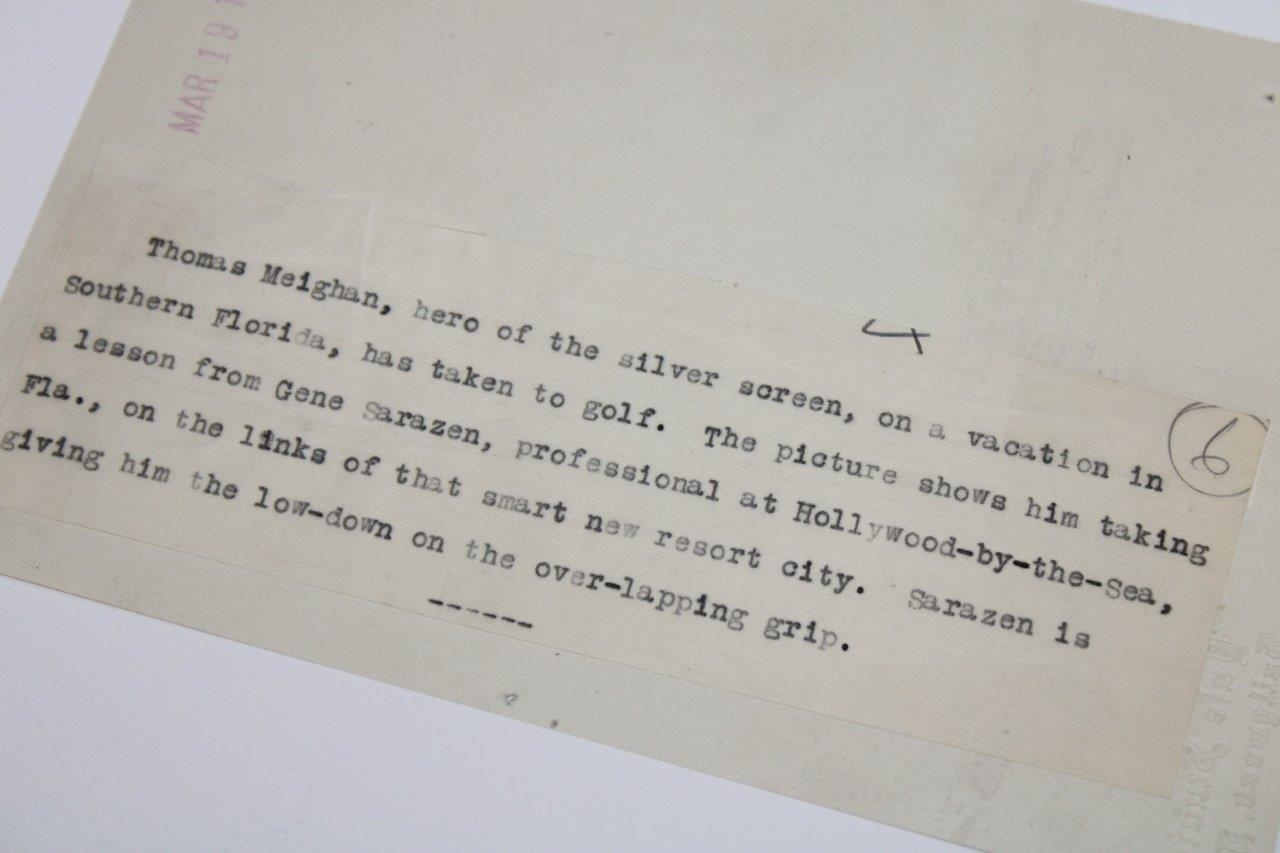 MAR 19
Thomas Meighan, hero of the silver screen, on a vacation in
Southern Florida, has taken to golf. The picture shows him taking
a lesson from Gene Sarazen, professional at Hollywood-by-the-Sea,
Fla., on the links of that smart new resort city. Sarazen is
giving him the low-down on the over-lapping grip.
------
6